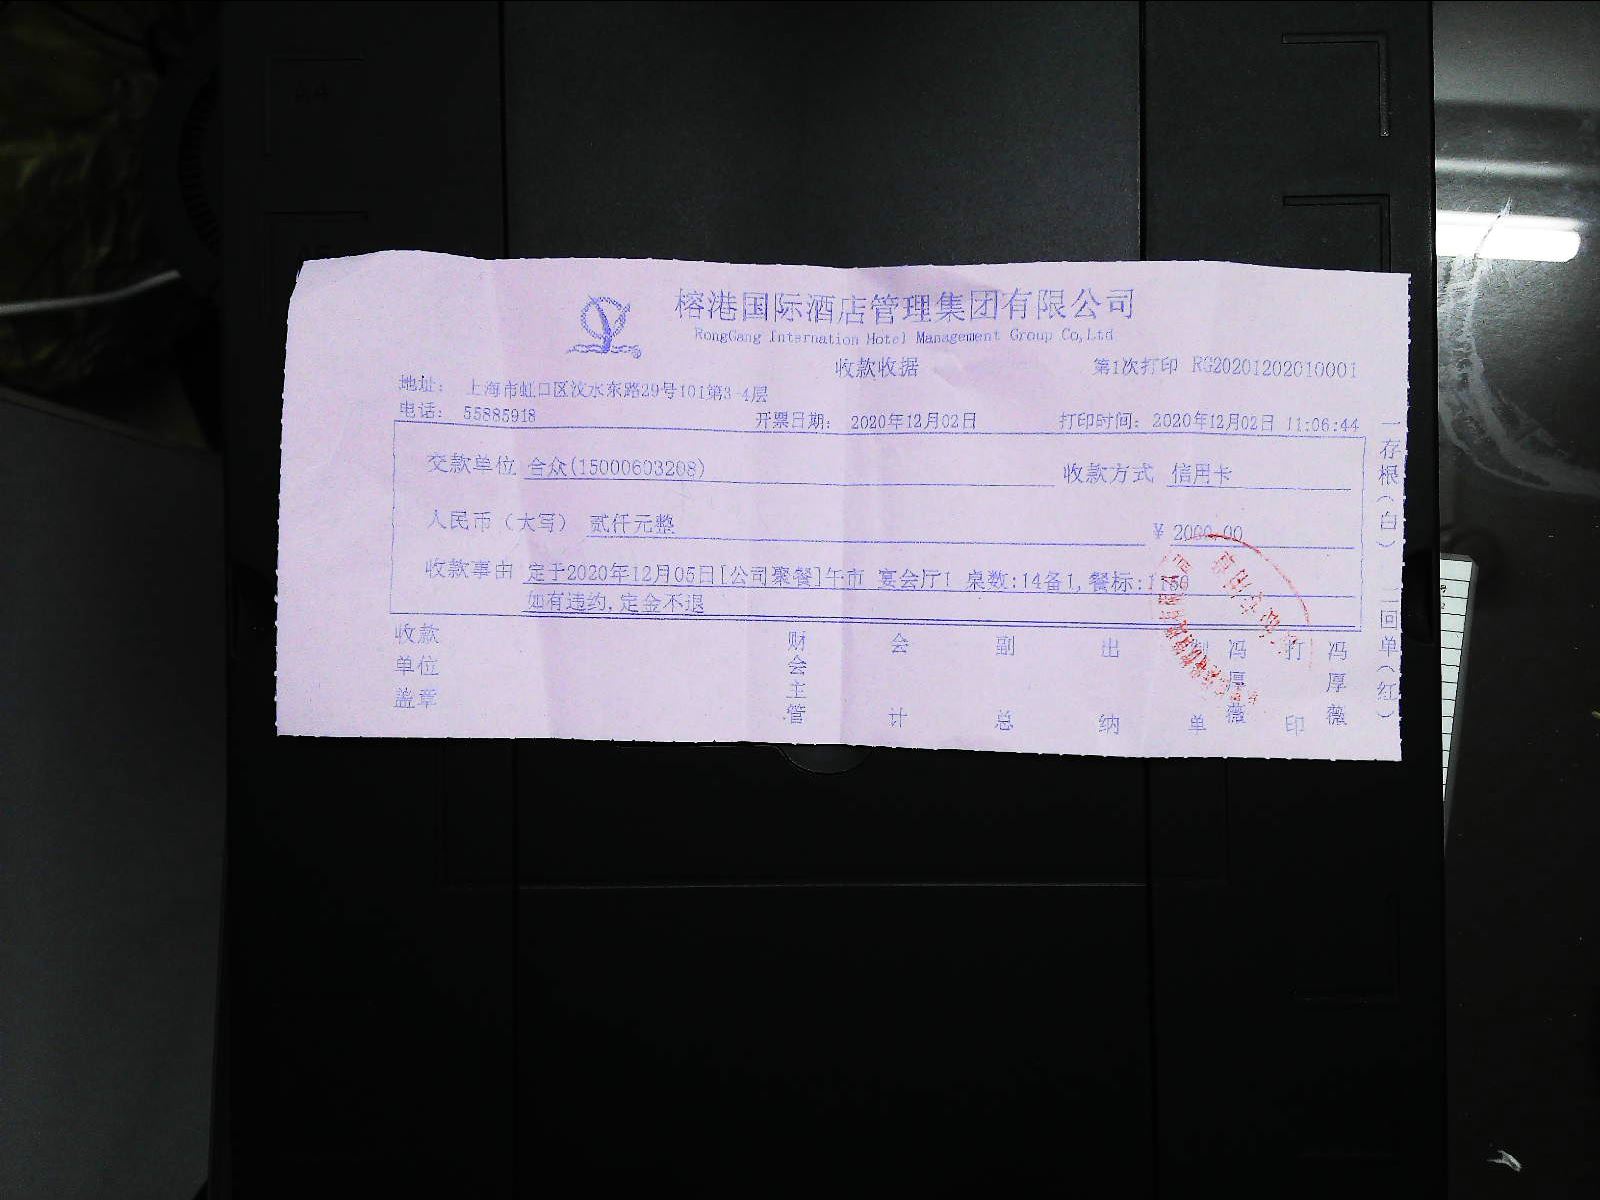 榕港国际酒店管理集团有限公司
RongGang Internation Hotel Management Group Co,Ltd
收款收据
第1次打印 RG20201202010001
地址： 上海市虹口区汶水东路29号101第3-4层
电话： 55885918 开票日期： 2020年12月02日 打印时间： 2020年12月02日 11:06:44
交款单位 合众(15000603208) 收款方式 信用卡
人民币（大写） 贰仟元整 ¥ 2000.00
收款事由 定于2020年12月05日[公司聚餐]午市 宴会厅1 桌数:14备1,餐标:1150
如有违约,定金不退
收款单位盖章 财会主管 会计 副总 出纳 制单 冯厚薇 打印 冯厚薇
一存根(白) 二回单(红)